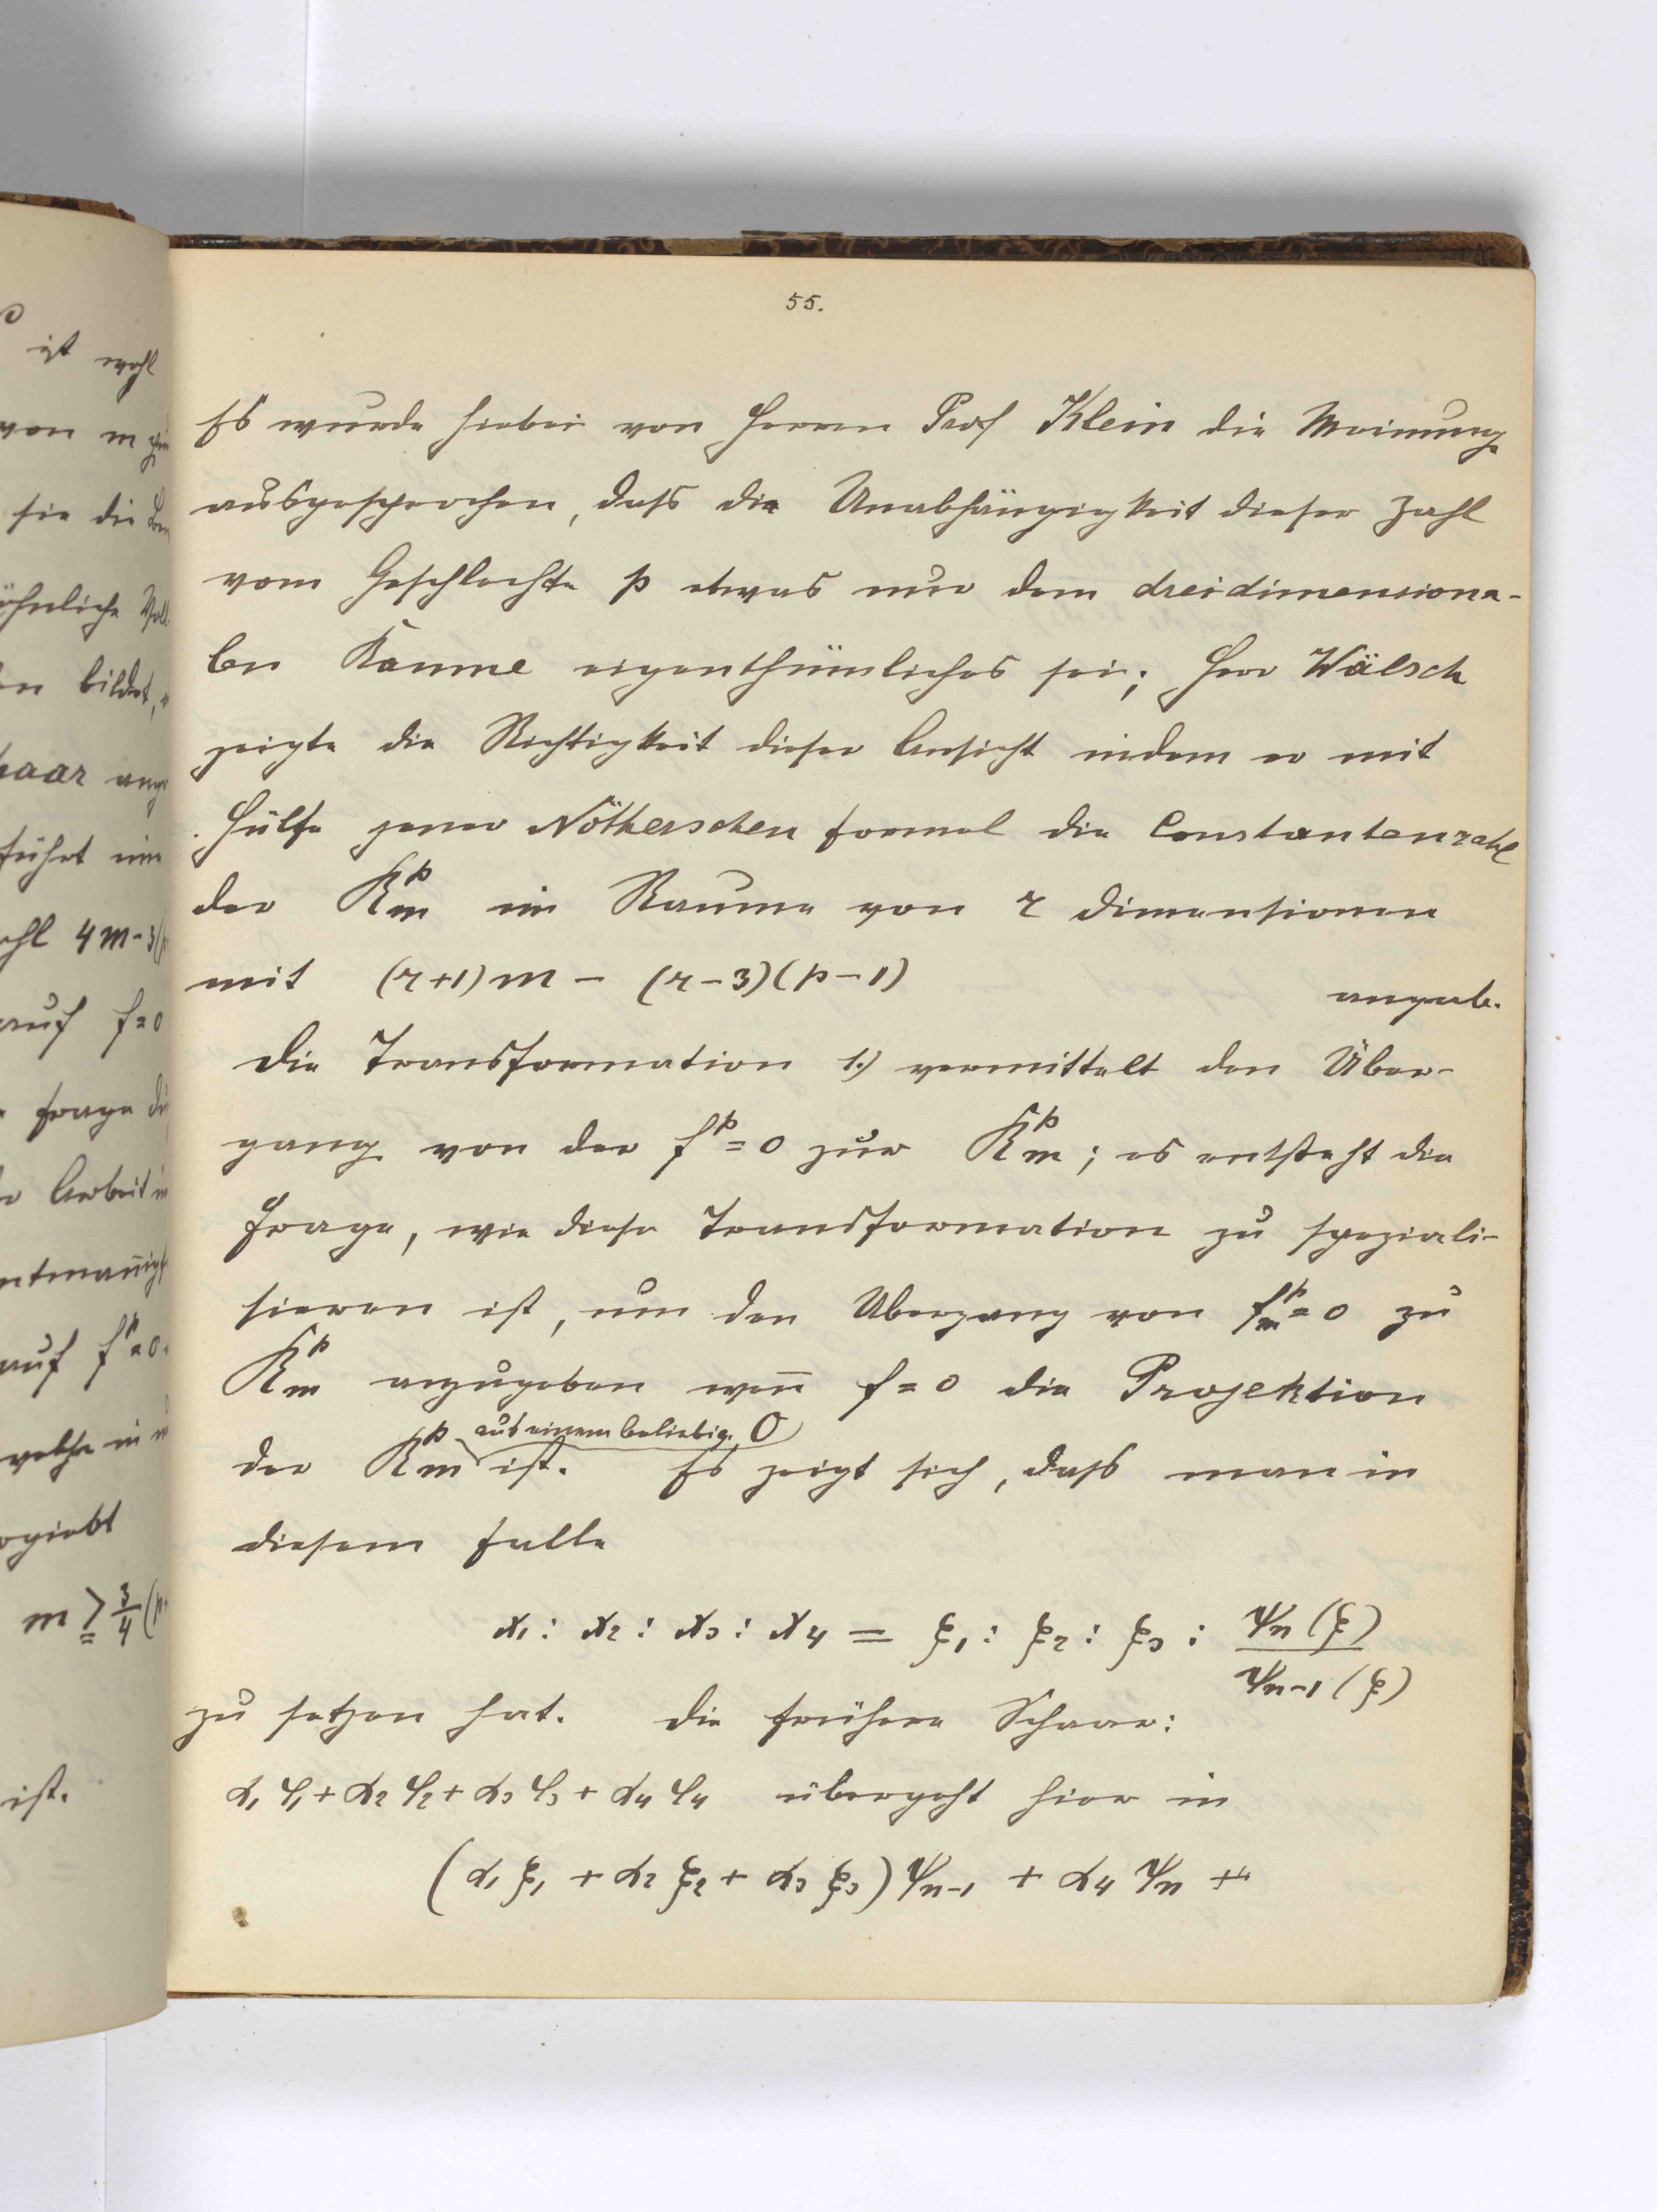 ist wohl
von m
sie die
bildet,
führt
4m-3(p
auf f=0
Frage
Arbeit
auf f^p=0.
m ≧ 3/4 (p
ist.
55.
Es wurde hiebei von Herrn Prof Klein die Meinung
ausgesprochen, dass die Unabhängigkeit dieser Zahl
vom Geschlechte p etwas nur dem dreidimensiona-
len Raume eigenthümliches sei; Herr Wälsch
zeigte die Richtigkeit dieser Ansicht indem er mit
Hülfe jener Nötherschen Formel die Constantenzahl
der R_m^p im Raume von r Dimensionen
mit (r+1)m - (r-3)(p-1) angab.
Die Transformation 1.) vermittelt den Über-
gang von der f^p=0 zur R_m^p; es entsteht die
Frage, wie diese Transformation zu speziali-
sieren ist, um den Übergang von f_m^p=0 zu
R_m^p anzugeben weñ f=0 die Projektion
der R_m^p aus einem beliebig. O ist. Es zeigt sich, dass man in
diesem Falle
x_1 : x_2 : x_3 : x_4 = ξ_1 : ξ_2 : ξ_3 : ψ_n(ξ)/ψ_{n-1}(ξ)
zu setzen hat. Die frühere Schaar:
α_1 φ_1 + α_2 φ_2 + α_3 φ_3 + α_4 φ_4 übergeht hier in
(α_1 ξ_1 + α_2 ξ_2 + α_3 ξ_3) ψ_{n-1} + α_4 ψ_n +